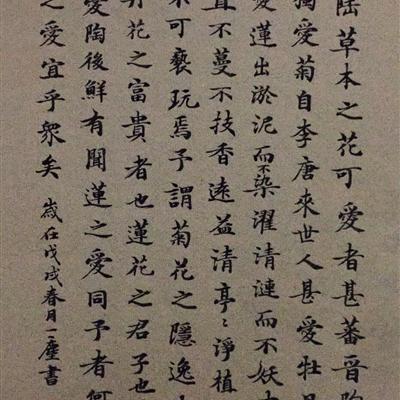 陸草木之花可愛者甚蕃晉陶
獨愛菊自李唐來世人甚愛牡丹
愛蓮出淤泥而不染濯清漣而不妖中
直不蔓不技香遠益清亭〻淨植
不可褻玩焉予謂菊花之隱逸
丹花之富貴者也蓮花之君子也
愛陶後鮮有聞蓮之愛同予者何
之愛宜乎衆矣 歲在戊戌春月一塵書